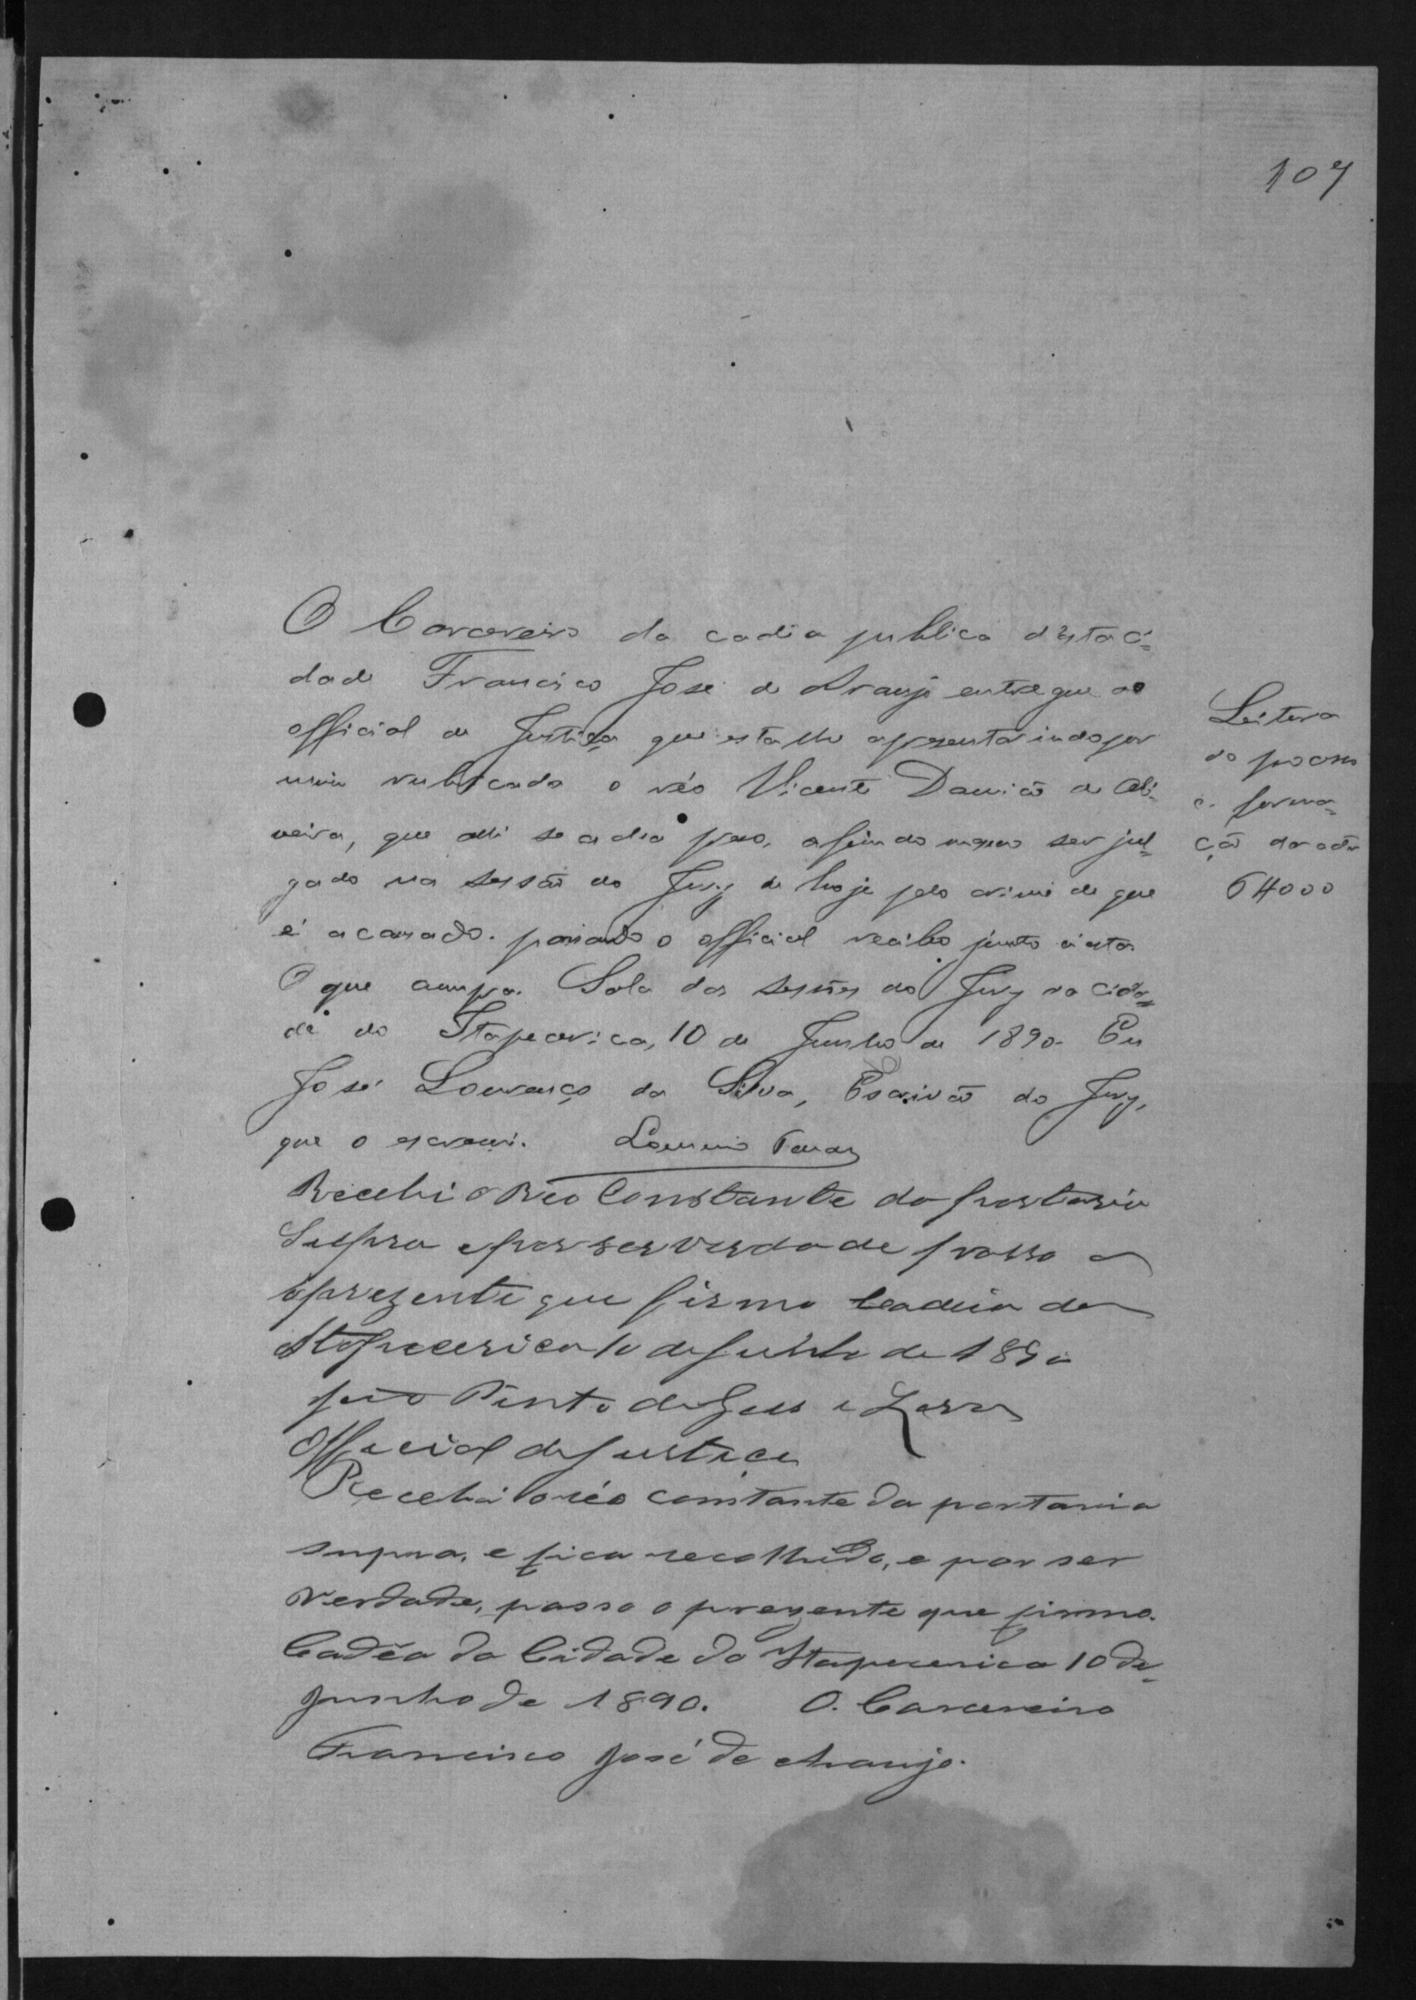 107
O Carcereiro da cadia publica d'esta ci-
dade Francisco José de Araujo entregue ao
official de Justiça que esta lhe apresentar indo por
mim rubricada o réo Vicente Damião de Oli-
veira, que alli se acha preso, afim do mesmo ser jul-
gado na sessão do Jury de hoje pelo crime de que
é accusado. passando o official recibo junto á esta
O que cumpra. Sala das sessões do Jury na cida-
de de Itapecerica, 10 de Junho de 1890. Eu
José Lourenço da Silva, Escrivão do Jury,
que o escrevi.
Leitura
do processo
e forma-
ção
6$000
Recebi o Reo Constante da portaria
Supra e por ser verdade passo a
aprezente que firmo Cadeia de
Itapecerica 10 de Junho de 1890
Pinto de
Official de Justica
Recebi o réo constante da portaria
supra, e fica recolhido, e por ser
verdade, passo o prezente que firmo.
Cadêa da Cidade da Itapecerica 10 de
Junho de 1890. O. Carcereiro
Francisco José de Araujo.